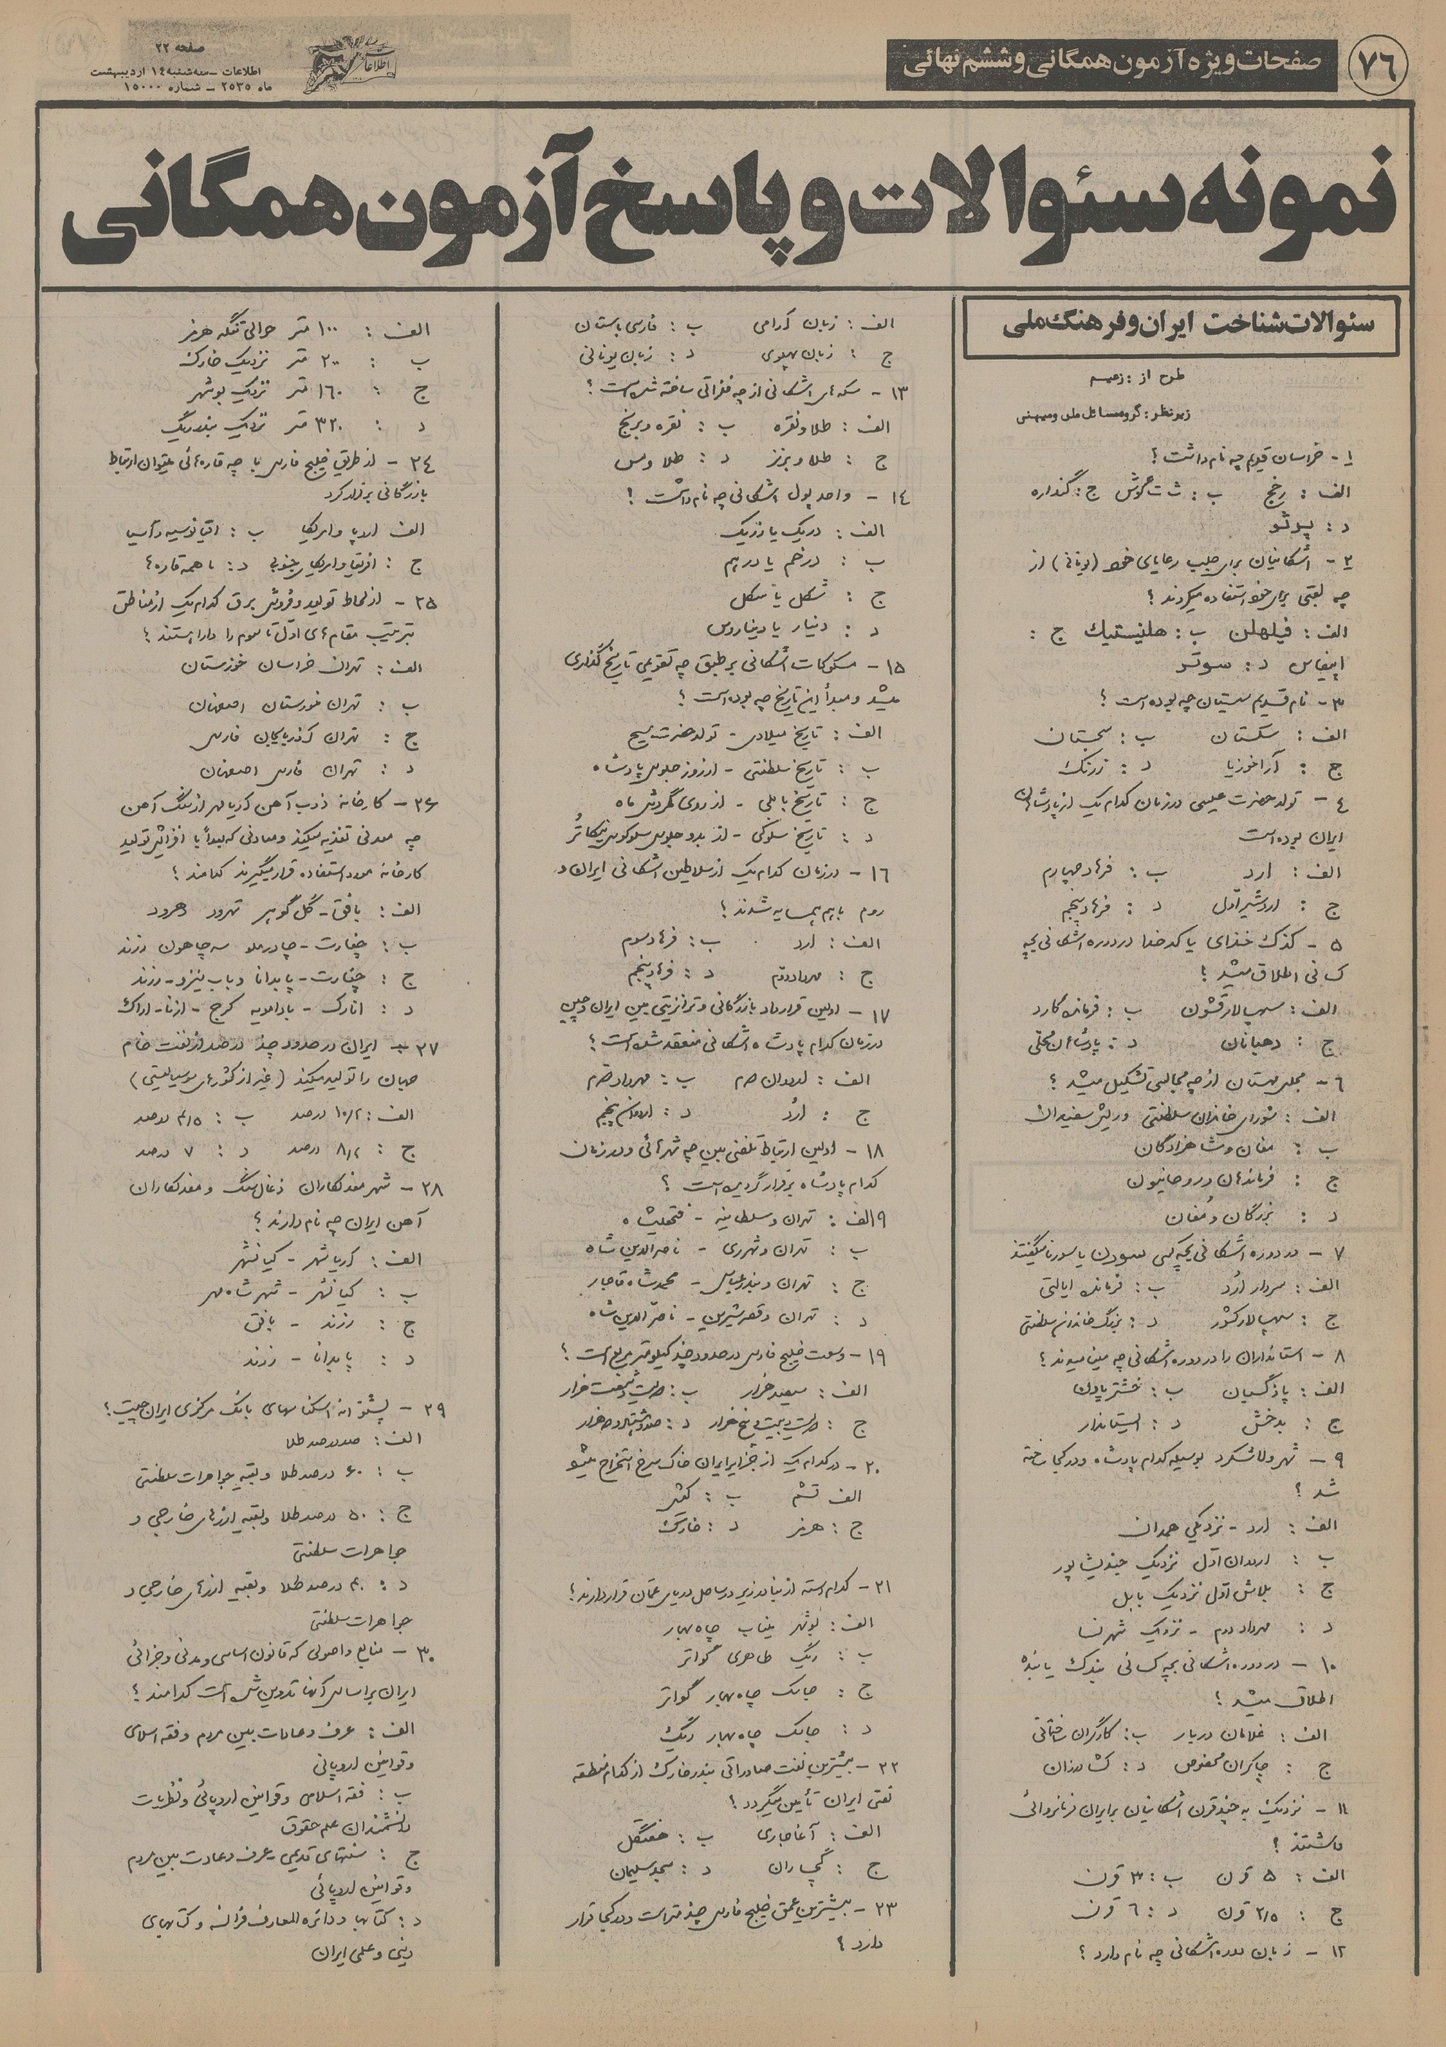 ۷۶
صفحات ویژه آزمون همگانی و ششم نهائی
صفحه ۲۲
اطلاعات – سه شنبه ۱۴ اردیبهشت
ماه ۲۵۳۵ – شماره ۱۵۰۰۰
اطلاعات
نمونه سئوالات و پاسخ آزمون همگانی
سئوالات شناخت ایران و فرهنگ ملی
طرح از : زمیم
زیرنظر : گروه مسائل ملی و میهنی
۱ - خراسان قدیم چه نام داشت ؟
الف : رخج ب : ثت گوش ج : گنداره
د : پرثو
۲ - اشکانیان برای جلب رعایای خود (یونانی) از
چه لقبی برای خود استفاده میکردند ؟
الف : فیلهلن ب : هلنیستیک ج :
اپیفانس د : سوتر
۳ - نام قدیم سیستان چه بوده است ؟
الف : سکستان ب : سجستان
ج : آراخوزیا د : زرنک
۴ - تولد حضرت عیسی در زمان کدام یک از پادشاهان
ایران بوده است
الف : ارد ب : فرهاد چهارم
ج : اردشیر اول د : فرهاد پنجم
۵ - کذک خذای یا کدخدا در دوره اشکانی بچه
کسانی اطلاق میشد ؟
الف : سپهسالار قشون ب : فرمانده گارد
ج : دهبانان د : پادشاهان محلی
۶ - مجلس مهستان از چه مجالسی تشکیل میشد ؟
الف : شورای خاندان سلطنتی و ریش سفیدان
ب : مغان و شاهزادگان
ج : فرماندهان و روحانیون
د : بزرگان و مغان
۷ - در دوره اشکانی بچه کسی سورن یا سورنا میگفتند
الف : سردار ارد ب : فرمانده ایالتی
ج : سپهسالار کشور د : بزرگ خاندان سلطنتی
۸ - استانداران را در دوره اشکانی چه مینامیدند ؟
الف : پاذگسبان ب : خشترپاون
ج : بدخش د : استاندار
۹ - شهر ولاشگرد بوسیله کدام پادشاه و در کجا ساخته
شد ؟
الف : ارد - نزدیکی همدان
ب : اردوان اول نزدیک جندیشاپور
ج : بلاش اول نزدیک بابل
د : مهرداد دوم - نزدیک شهر نسا
۱۰ - در دوره اشکانی بچه کسانی بندک یا بنده
اطلاق میشد ؟
الف : غلامان دربار ب : کارگران ساختمانی
ج : چاکران مخصوص د : کشاورزان
۱۱ - نزدیک به چند قرن اشکانیان بر ایران فرمانروائی
داشتند ؟
الف : ۵ قرن ب : ۳ قرن
ج : ۲/۵ قرن د : ۶ قرن
۱۲ - زبان دوره اشکانی چه نام دارد ؟
الف : زبان آرامی ب : فارسی باستان
ج : زبان پهلوی د : زبان یونانی
۱۳ - سکه های اشکانی از چه فلزاتی ساخته شده است ؟
الف : طلا و نقره ب : نقره و برنج
ج : طلا و برنز د : طلا و مس
۱۴ - واحد پول اشکانی چه نام داشت ؟
الف : دریک یا زریک
ب : درخم یا درهم
ج : شکل یا سکل
د : دینار یا دیناروس
۱۵ - مسکوکات اشکانی بر طبق چه تقویمی تاریخ گذاری
میشد و مبدأ این تاریخ چه بوده است ؟
الف : تاریخ میلادی - تولد حضرت مسیح
ب : تاریخ سلطنتی - از روز جلوس پادشاه
ج : تاریخ بابلی - از روی گردش ماه
د : تاریخ سلوکی - از بدو جلوس سلوکوس نیکاتر
۱۶ - در زمان کدام یک از سلاطین اشکانی ایران و
روم با هم همسایه شدند ؟
الف : ارد ب : فرهاد سوم
ج : مهرداد دوم د : فرهاد پنجم
۱۷ - اولین قرارداد بازرگانی و ترانزیتی بین ایران و چین
در زمان کدام پادشاه اشکانی منعقد شده است ؟
الف : اردوان دوم ب : مهرداد دوم
ج : ارد د : اردوان پنجم
۱۸ - اولین ارتباط تلفنی بین چه شهرهائی و در زمان
کدام پادشاه برقرار گردیده است ؟
الف : تهران و سلطانیه - فتحعلیشاه
ب : تهران و شهرری - ناصرالدین شاه
ج : تهران و بندرعباس - محمدشاه قاجار
د : تهران و قصر شیرین - ناصرالدین شاه
۱۹ - وسعت خلیج فارس در حدود چند کیلومتر مربع است ؟
الف : سیصد هزار ب : دویست و شصت هزار
ج : دویست و بیست و پنج هزار د : صد و هشتاد و دو هزار
۲۰ - در کدام یک از جزایر ایران خاک سرخ استخراج میشود
الف قشم ب : کیش
ج : هرمز د : خارک
۲۱ - کدام دسته از بنادر زیر در ساحل دریای عمان قرار دارند ؟
الف : بوشهر میناب چاه بهار
ب : ریگ طاهری گواتر
ج : جاسک چاه بهار گواتر
د : جاسک چاه بهار ریگ
۲۲ - بیشترین نفت صادراتی بندر خارک از کدام منطقه
نفتی ایران تأمین میگردد ؟
الف : آغاجاری ب : هفتگل
ج : گچساران د : مسجد سلیمان
۲۳ - بیشترین عمق خلیج فارس چند متر است و در کجا قرار
دارد ؟
الف : ۱۰۰ متر حوالی تنگه هرمز
ب : ۲۰۰ متر نزدیک خارک
ج : ۱۶۰ متر نزدیک بوشهر
د : ۳۲۰ متر نزدیک بندر ریگ
۲۴ - از طریق خلیج فارس با چه قاره هائی میتوان ارتباط
بازرگانی برقرار کرد
الف اروپا و امریکا ب : اقیانوسیه و آسیا
ج : افریقا و امریکای جنوبی د : با همه قاره ها
۲۵ - از لحاظ تولید و فروش برق کدام یک از مناطق
بترتیب مقام های اول تا سوم را دارا هستند ؟
الف : تهران خراسان خوزستان
ب : تهران خوزستان اصفهان
ج : تهران آذربایجان فارس
د : تهران فارس اصفهان
۲۶ - کارخانه ذوب آهن آریامهر از سنگ آهن
چه معدنی تغذیه میکند و معادنی که بعداً با افزایش تولید
کارخانه مورد استفاده قرار میگیرند کدامند ؟
الف : بافق - گل گوهر تهرود
ب : چغارت - چادرملو سه چاهون زرند
ج : چغارت - پابدانا و باب نیزو - زرند
د : انارک - بادامویه کرج - ازنا - اراک
۲۷ - ایران در حدود چند درصد از نفت خام
جهان را تولید میکند (غیر از کشورهای سوسیالیستی)
الف : ۱۰/۲ درصد ب : ۴/۵ درصد
ج : ۸/۲ درصد د : ۷ درصد
۲۸ - شهر معدنکاران ذغال سنگ و معدنکاران
آهن ایران چه نام دارند ؟
الف : آریاشهر - کیانشهر
ب : کیانشهر - شهر شاه مهر
ج : زرند - بافق
د : پابدانا - زرند
۲۹ - پشتوانه اسکناسهای بانک مرکزی ایران چیست ؟
الف : صددرصد طلا
ب : ۶۰ درصد طلا و بقیه جواهرات سلطنتی
ج : ۵۰ درصد طلا و بقیه ارزهای خارجی و
جواهرات سلطنتی
د : ۴۰ درصد طلا و بقیه ارزهای خارجی و
جواهرات سلطنتی
۳۰ - منابع و اصولی که قانون اساسی و مدنی و جزائی
ایران بر اساس آنها تدوین شده است کدامند ؟
الف : عرف و عادات بین مردم و فقه اسلامی
و قوانین اروپائی
ب : فقه اسلامی و قوانین اروپائی و نظریات
دانشمندان علم حقوق
ج : سنتهای قدیمی - عرف و عادت بین مردم
و قوانین اروپائی
د : کتابها و دائره المعارف فرانسه و کتابهای
دینی و علمی ایران